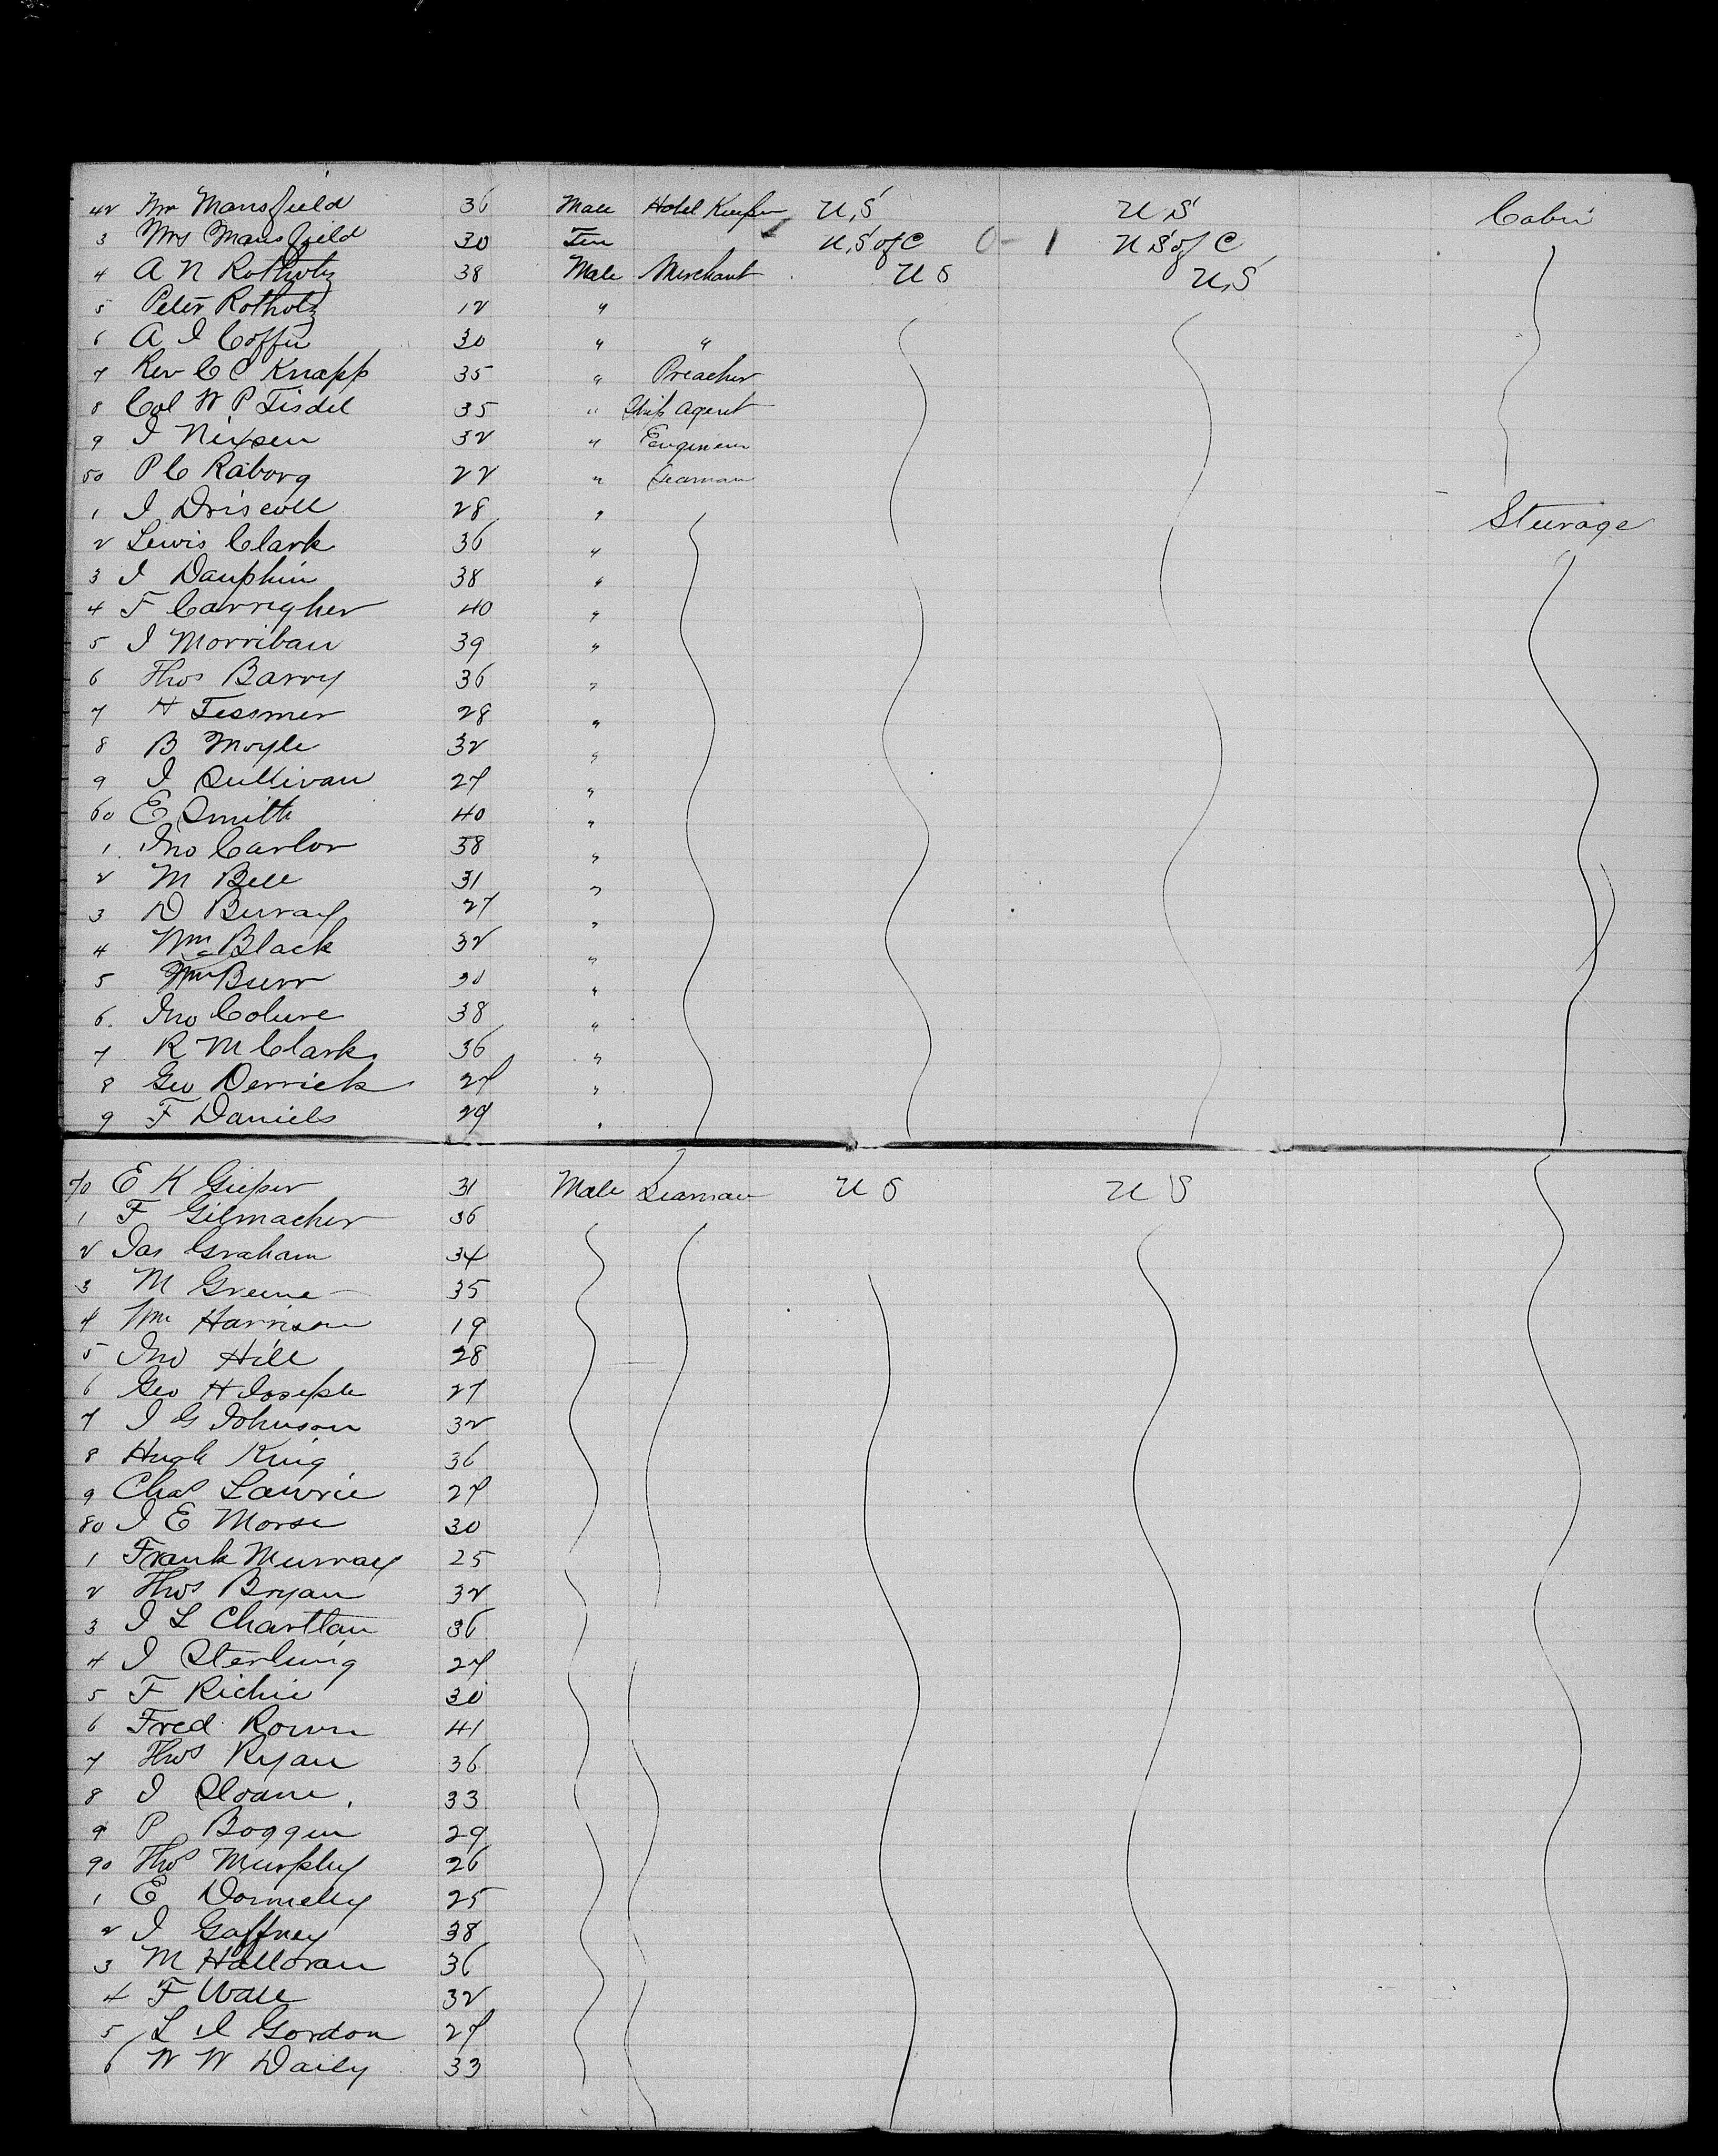 42 Mr Mansfield 36 Male Hotel Keeper U,S U,S Cabin
3 Mrs Mansfield 30 Fem U,S of C 0 - 1 U S of C
4 A N Rotholtz 38 Male Merchant U S U,S
5 Peter Rotholtz 12 "
6 A I Coffin 30 " "
7 Rev C C Knapp 35 " Preacher
8 Col W P Tisdel 35 " Ship Agent
9 I Nixsen 32 " Engineer
50 P C Raborg 22 " Seaman
1 I Driscoll 28 " Steerage
2 Lewis Clark 36 "
3 I Dauphin 38 "
4 F Carrigher 40 "
5 I Morriban 39 "
6 Thos Barry 36 "
7 H Tessmer 28 "
8 B Moyle 32 "
9 I Sullivan 27 "
60 E Smith 40 "
1 Jno Carlor 38 "
2 M Bell 31 "
3 D Buray 27 "
4 Wm Black 32 "
5 Wm Burr 30 "
6 Jno Colure 38 "
7 R M Clark 36 "
8 Geo Derrick 27 "
9 F Daniels 29 "
70 E K Gieper 31 Male Seaman U S U S
1 F Gilmacher 36
2 Jas Graham 34
3 M Greene 35
4 Wm Harrison 19
5 Jno Hill 28
6 Geo H Joseph 27
7 I G Johnson 32
8 Hugh King 36
9 Chas Lawrie 27
80 I E Morse 30
1 Frank Murray 25
2 Thos Bryan 32
3 I L Charttan 36
4 I Sterling 27
5 F Richie 30
6 Fred Rown 41
7 Thos Ryan 36
8 I Sloane 33
9 P Boggen 29
90 Thos Murphy 26
1 E Donnelly 25
2 I Gaffney 38
3 M Halloran 36
4 F Wall 32
5 L I Gordon 27
6 W W Daily 33